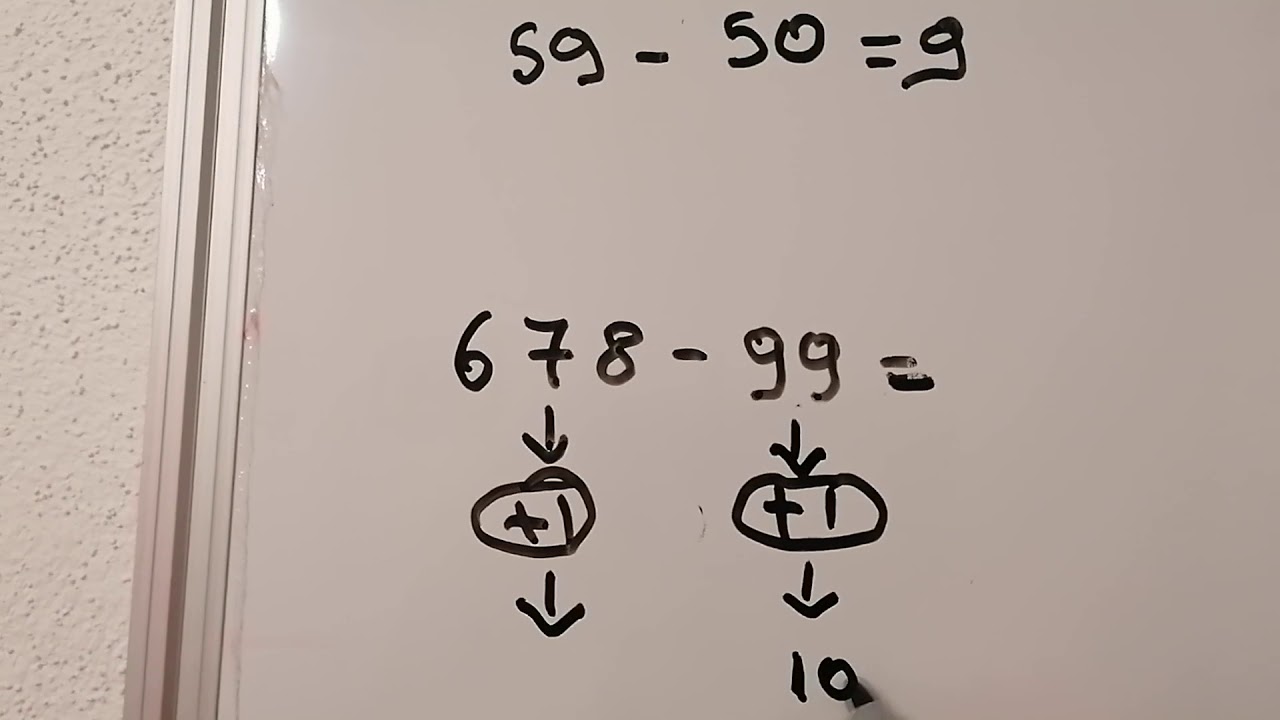 59 - 50 = 9
678 - 99 =
↓ ↓
+1 +1
↓ ↓
10